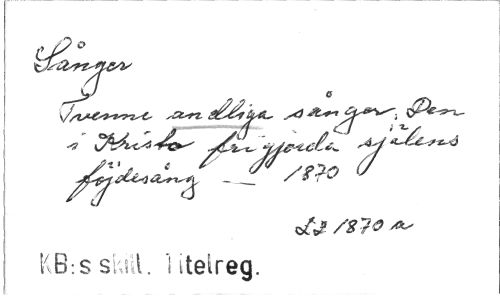 Sånger
Tvenne andliga sånger. Den
i Kristo frigjorda själens
föjdesång — 1870
LZ 1870 a
KB:s skill. Titelreg.